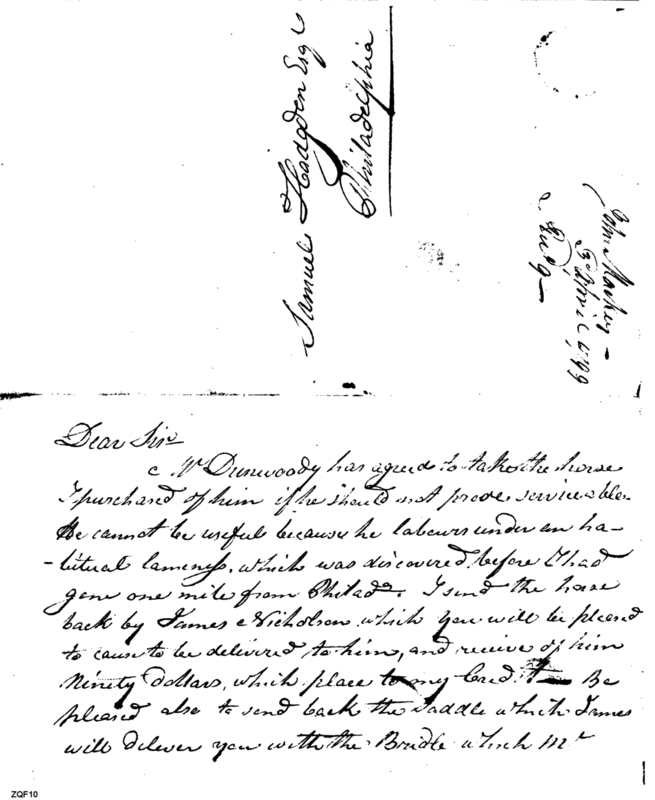 Samuel Hodgdon Esqr
Philadelphia
John Mackey
Dear Sir
Mr Dunwoody has agreed to take the horse
I purchased of him if he should not prove serviceable
He cannot be useful because he labours under an ha-
-bitual lameness, which was discovered before I had
gone one mile from Philada. I send the horse
back by James Nicholson which you will be pleased
to cause to be delivered to him, and receive of him
Ninety Dollars, which place to my Credit — Be
pleased also to send back the saddle which James
will deliver you with the Bridle which Mr
ZQF10